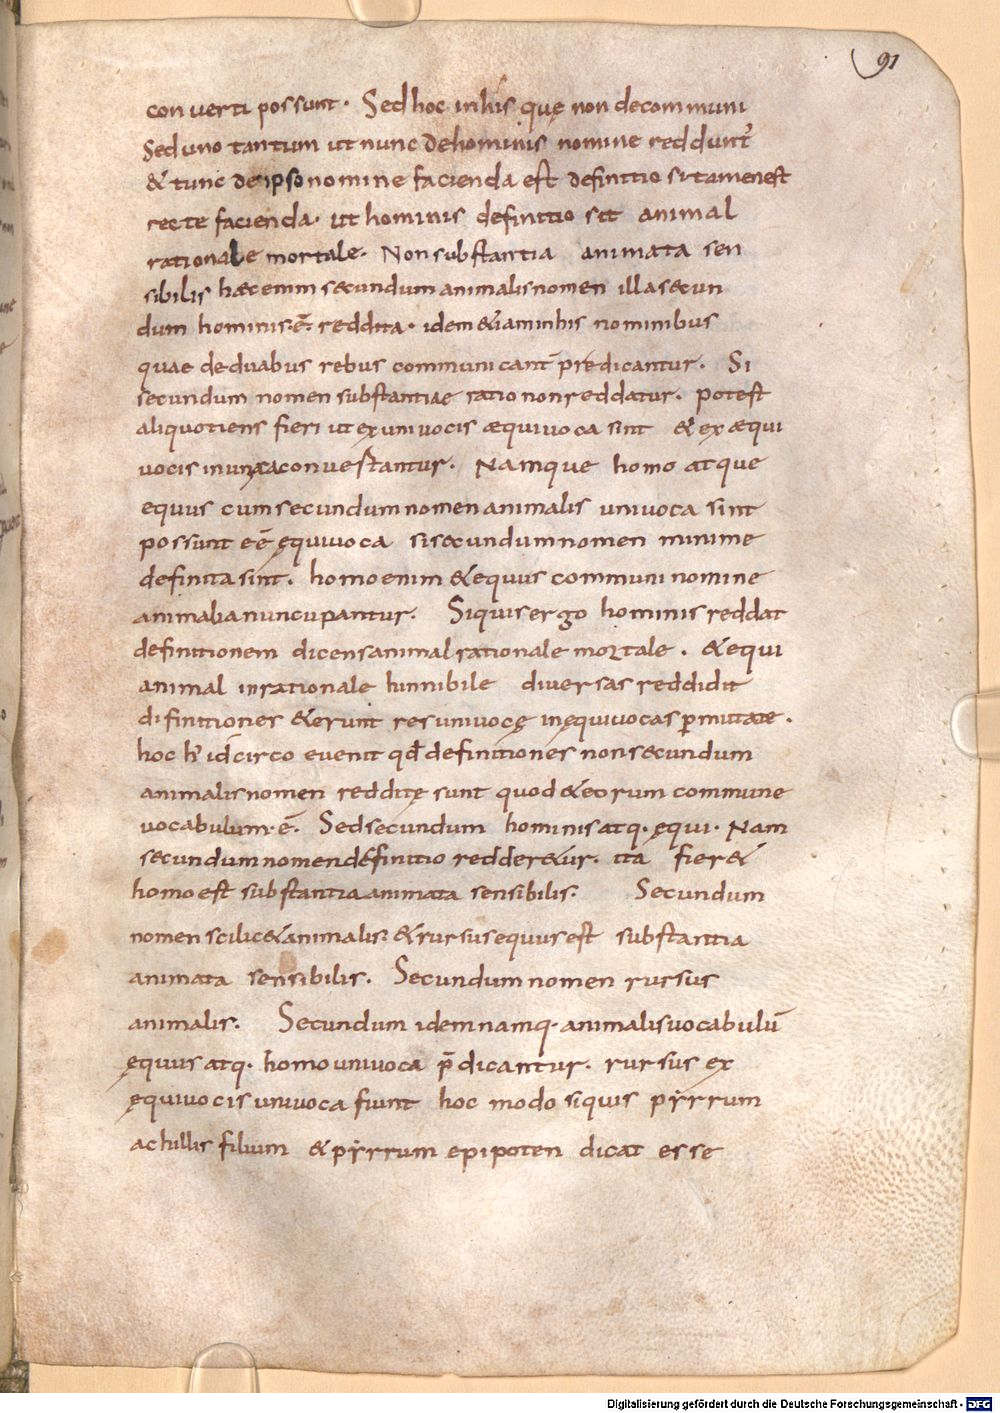 91
conuerti possunt. Sed hoc in his quę non de communi
Sed uno tantum ut nunc de hominis nomine reddunt̄
& tunc de ipso nomine facienda est definitio si tamen est
recte facienda. ut hominis definitio sit animal
rationale mortale. Non substantia animata sen
sibilis haec enim secundum animalis nomen illa secun
dum hominis. ē. reddita. idem &iam in his nominibus
quae de duabus rebus communi cant p̄redicantur. Si
secundum nomen substantiae ratio non reddatur. potest
aliquotiens fieri ut ex uniuocis æquiuoca sint & ex æqui
uocis in conuertantur. Namque homo atque
equus cum secundum nomen animalis uniuoca sint
possunt eē ęquiuoca si secundum nomen minime
definita sint. homo enim & equus communi nomine
animalia nuncupantur. Si quis ergo hominis reddat
definitionem dicens animal rationale mortale. & equi
animal inrationale hinnibile diuersas reddidit
difinitiones & erunt res uniuocę in ęquiuocas p̄mutate.
hoc idcirco euenit qđ definitiones non secundum
animalis nomen redditę sunt quod & eorum commune
uocabulum. ē. Sed secundum hominis atq. ęqui. Nam
secundum nomen definitio redder&ur. ita fier&
homo est substantia animata sensibilis. Secundum
nomen scilic& animalis. & rursus equus est substantia
animata sensibilis. Secundum nomen rursus
animalis. Secundum idem namq. animalis uocabulū
ęquus atq. homo uniuoca p̄dicantur. rursus ex
ęquiuocis uniuoca fiunt hoc modo si quis pẏrrum
achillis filium & pẏrrum epipoten dicat esse
Digitalisierung gefördert durch die Deutsche Forschungsgemeinschaft - DFG